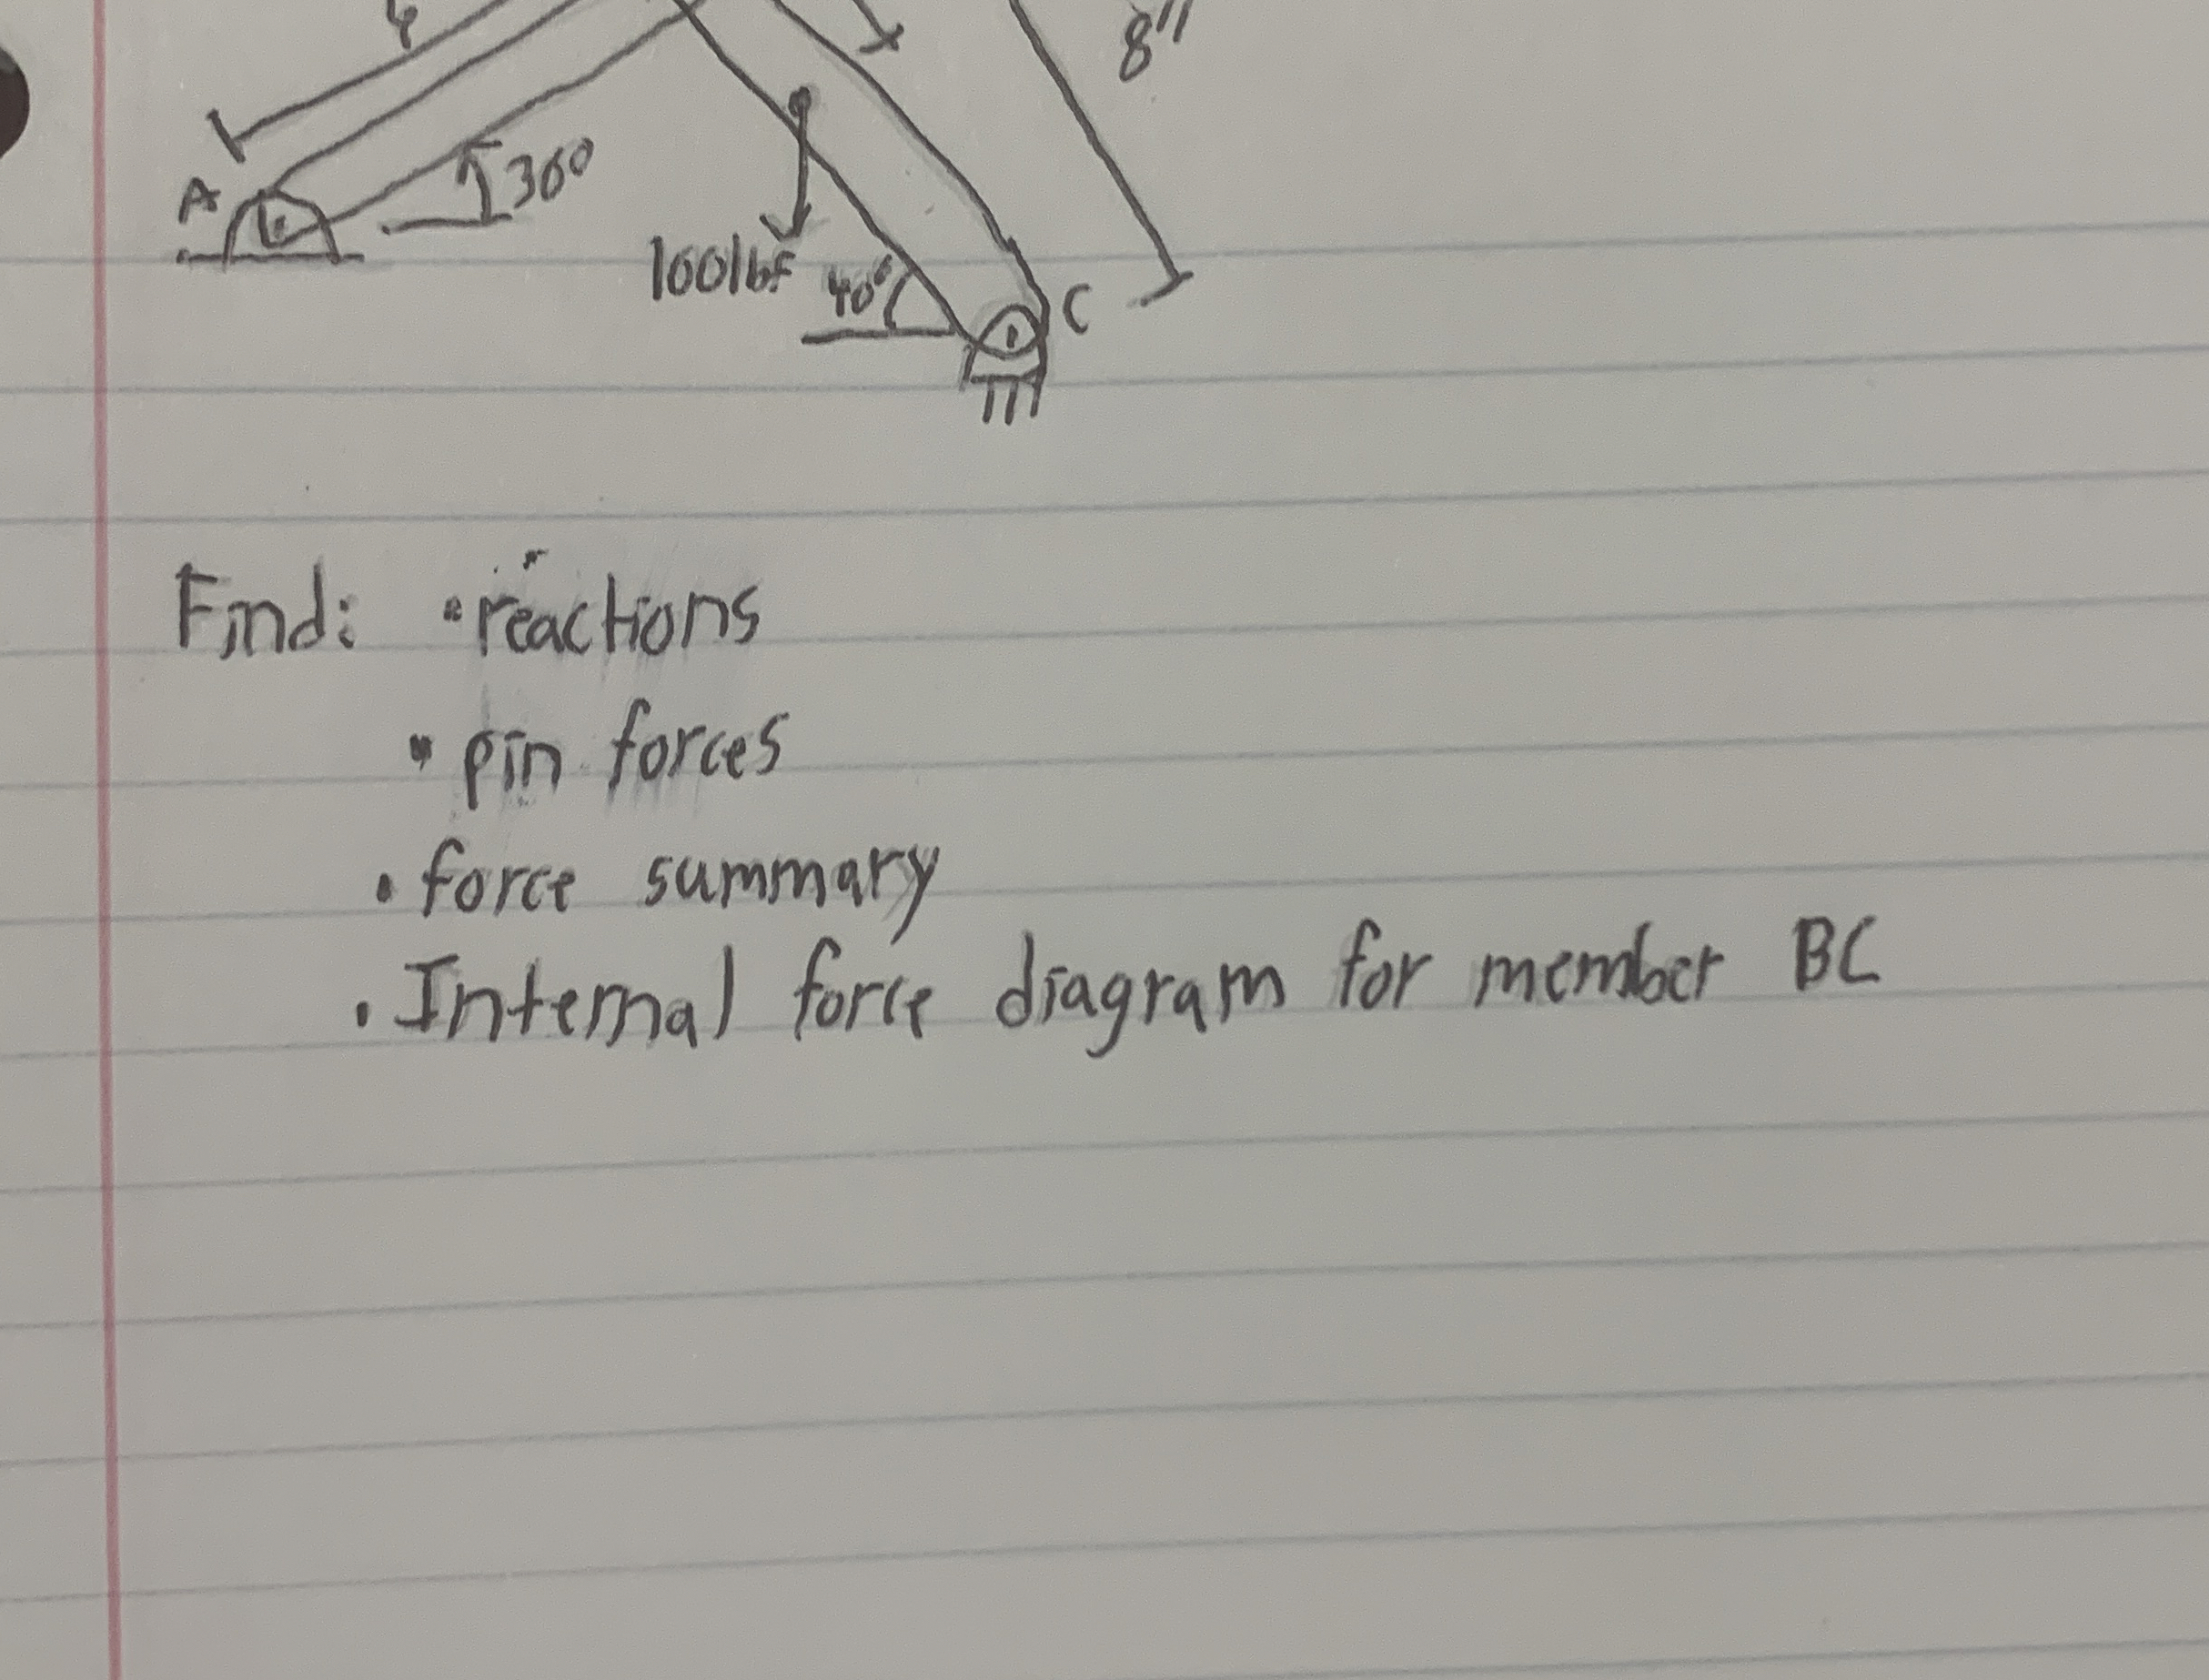 8"
A
30°
100lbf
40°
C
Find: •reactions
• pin forces
• force summary
• Internal force diagram for member BC